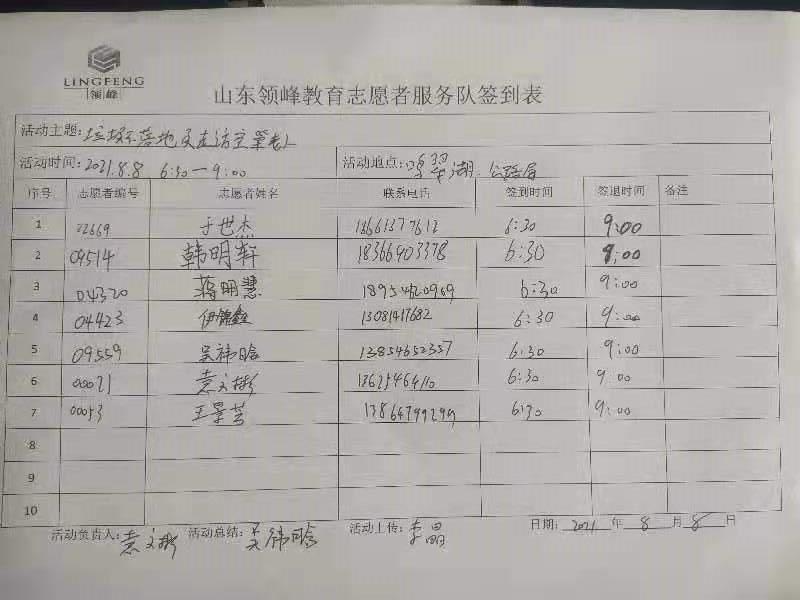 LINGFENG
领峰
山东领峰教育志愿者服务队签到表
活动主题: 垃圾不落地 走访
活动时间: 2021.8.8 6:30—9:00 活动地点: 湖. 公路局
序号 志愿者编号 志愿者姓名 联系电话 签到时间 签退时间 备注
1 22669 于世杰 18661377612 6:30 9:00
2 09514 韩明轩 18366903378 6:30 9:00
3 04320 蒋明慧 18954620969 6:30 9:00
4 04423 伊锦鑫 13081417682 6:30 9:00
5 09559 吴祎晗 13854652357 6:30 9:00
6 00021 袁文彬 13625464110 6:30 9 00
7 00053 王景芸 13864799299 6:30 9:00
8
9
10
活动负责人: 袁文彬 活动总结: 吴祎晗 活动上传: 李晶 日期: 2021 年 8 月 8 日